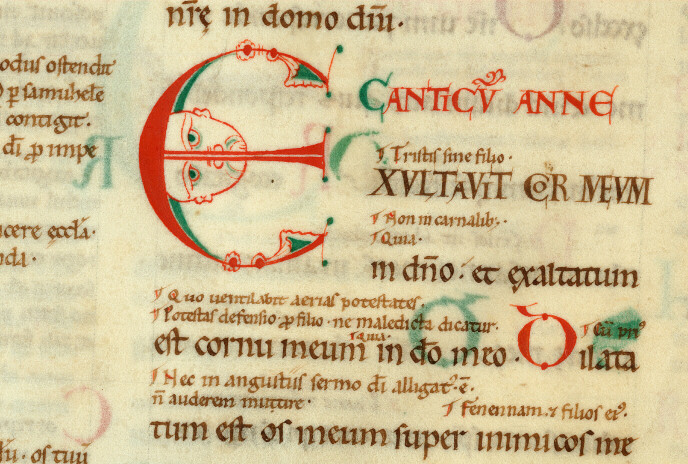 nr̄ę in domo dn̄i·
odus ostendit
p̱ samuhelē
contigit·
di̅ p̱ impe
CANTICV̄ ANNE
Tristis sine filio·
EXVLTAVIT COR MEVM
Non in carnalib;·
Quia·
in dn̄o· et exaltatum
cere ęccl̄a·
nda·
Quo uentilabit aerias potestates·
Potestas defensio p̱ filio· ne maledicta dicatur·
Quia·
est cornu meum in dō meo· Dilata
Nec in angustus sermo di̅ alligat᷒· ē·
n̄ auderem muttire·
Fenennam· & filios ei᷒·
tum est os meum super inimicos me
os tuū